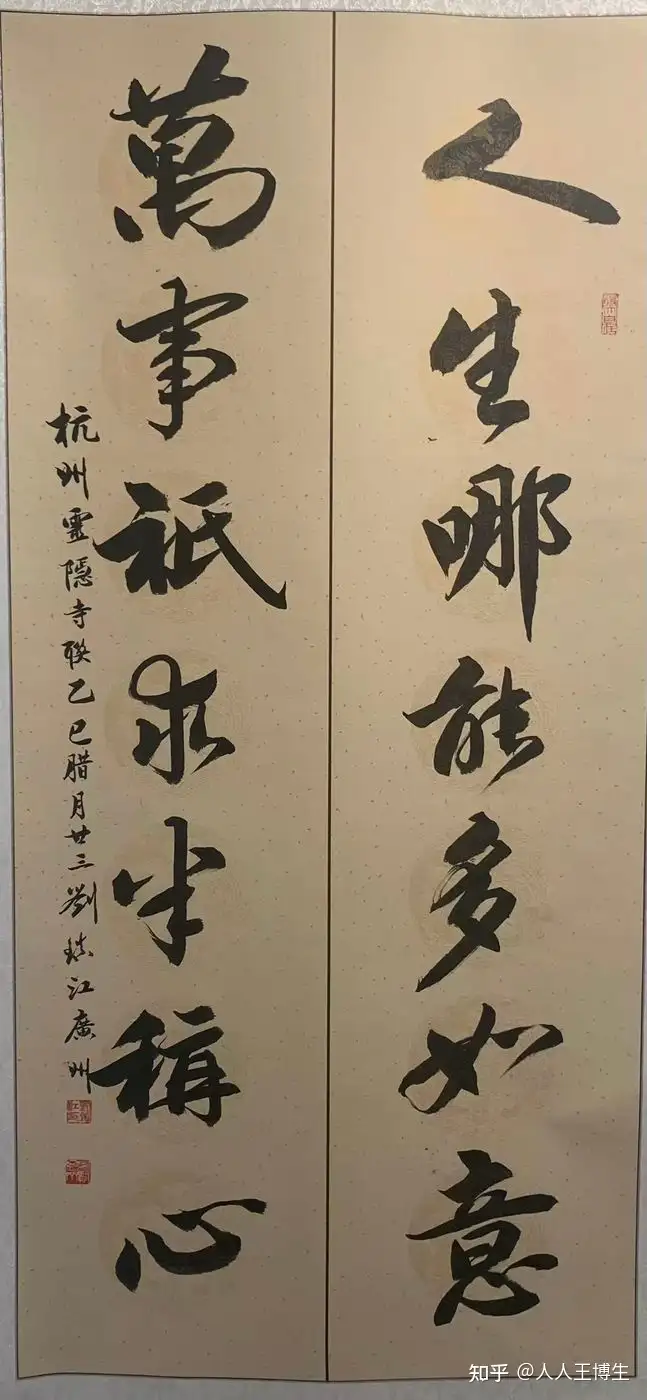 人生哪能多如意
萬事祇求半稱心
杭州靈隱寺聯乙巳腊月廿三劉鎮江廣州
知乎 @人人王博生